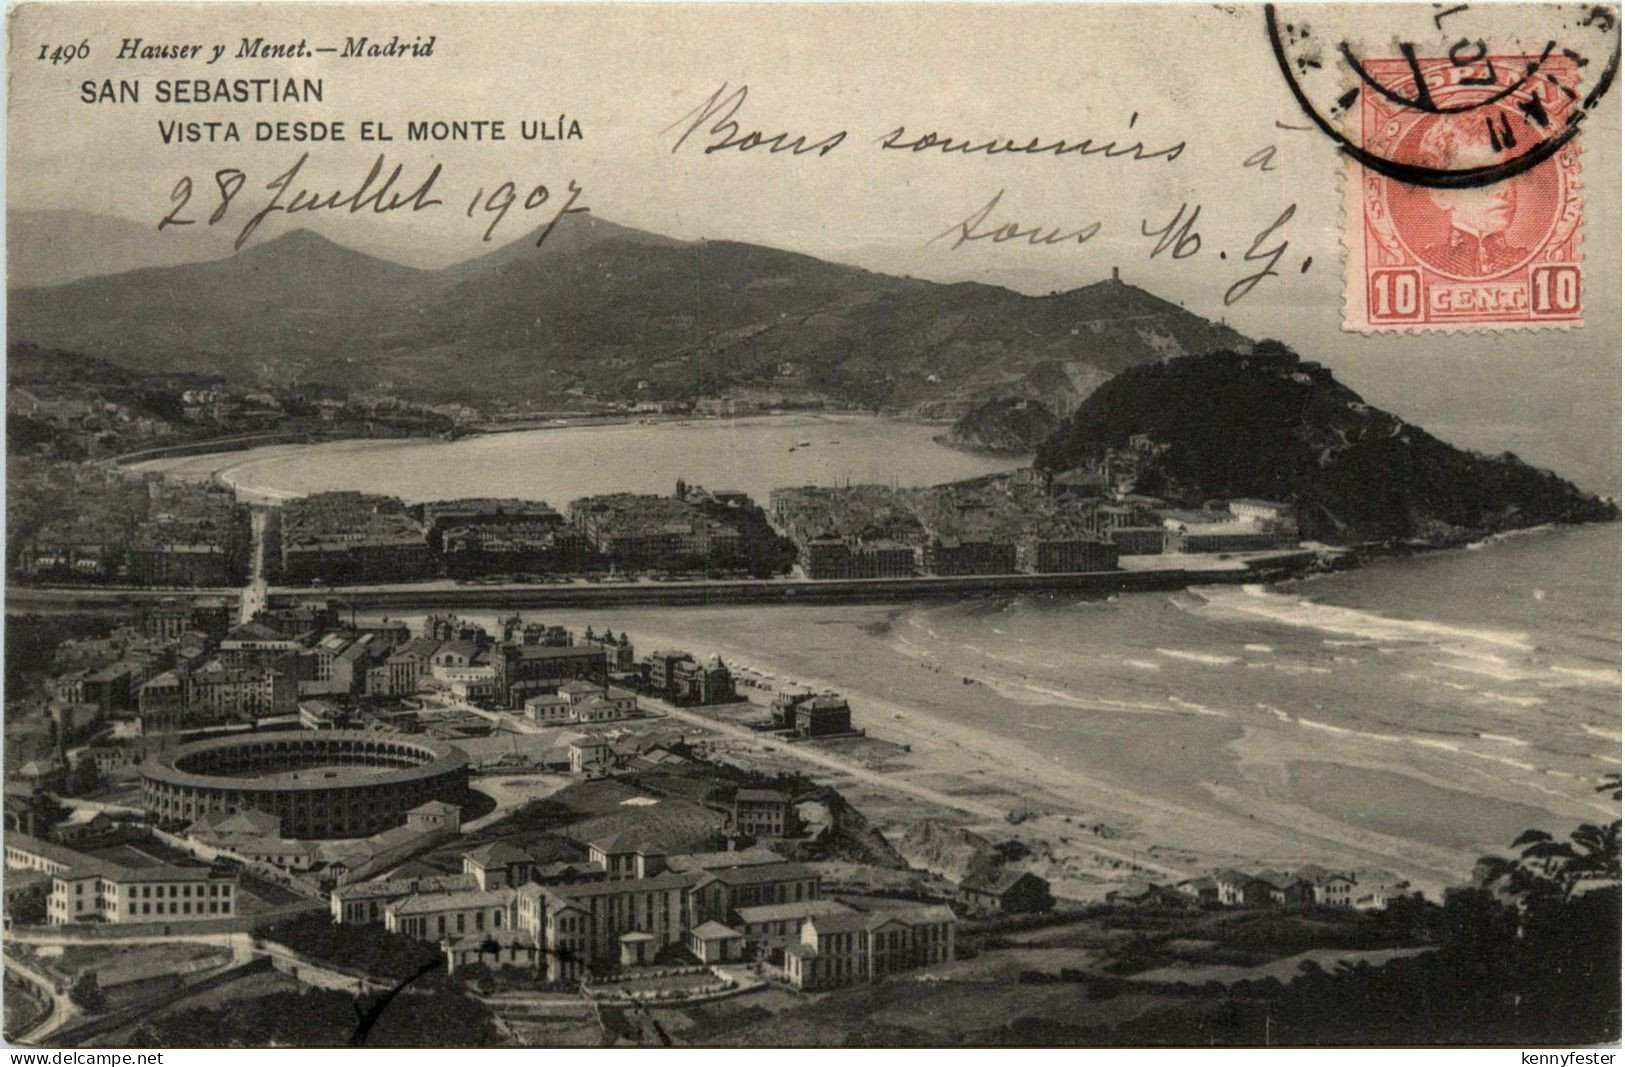 1496 Hauser y Menet.—Madrid
SAN SEBASTIAN
VISTA DESDE EL MONTE ULÍA
28 Juillet 1907
Bons souvenirs à
tous M. G.
10 CENT. 10
delcampe.net
kennyfester